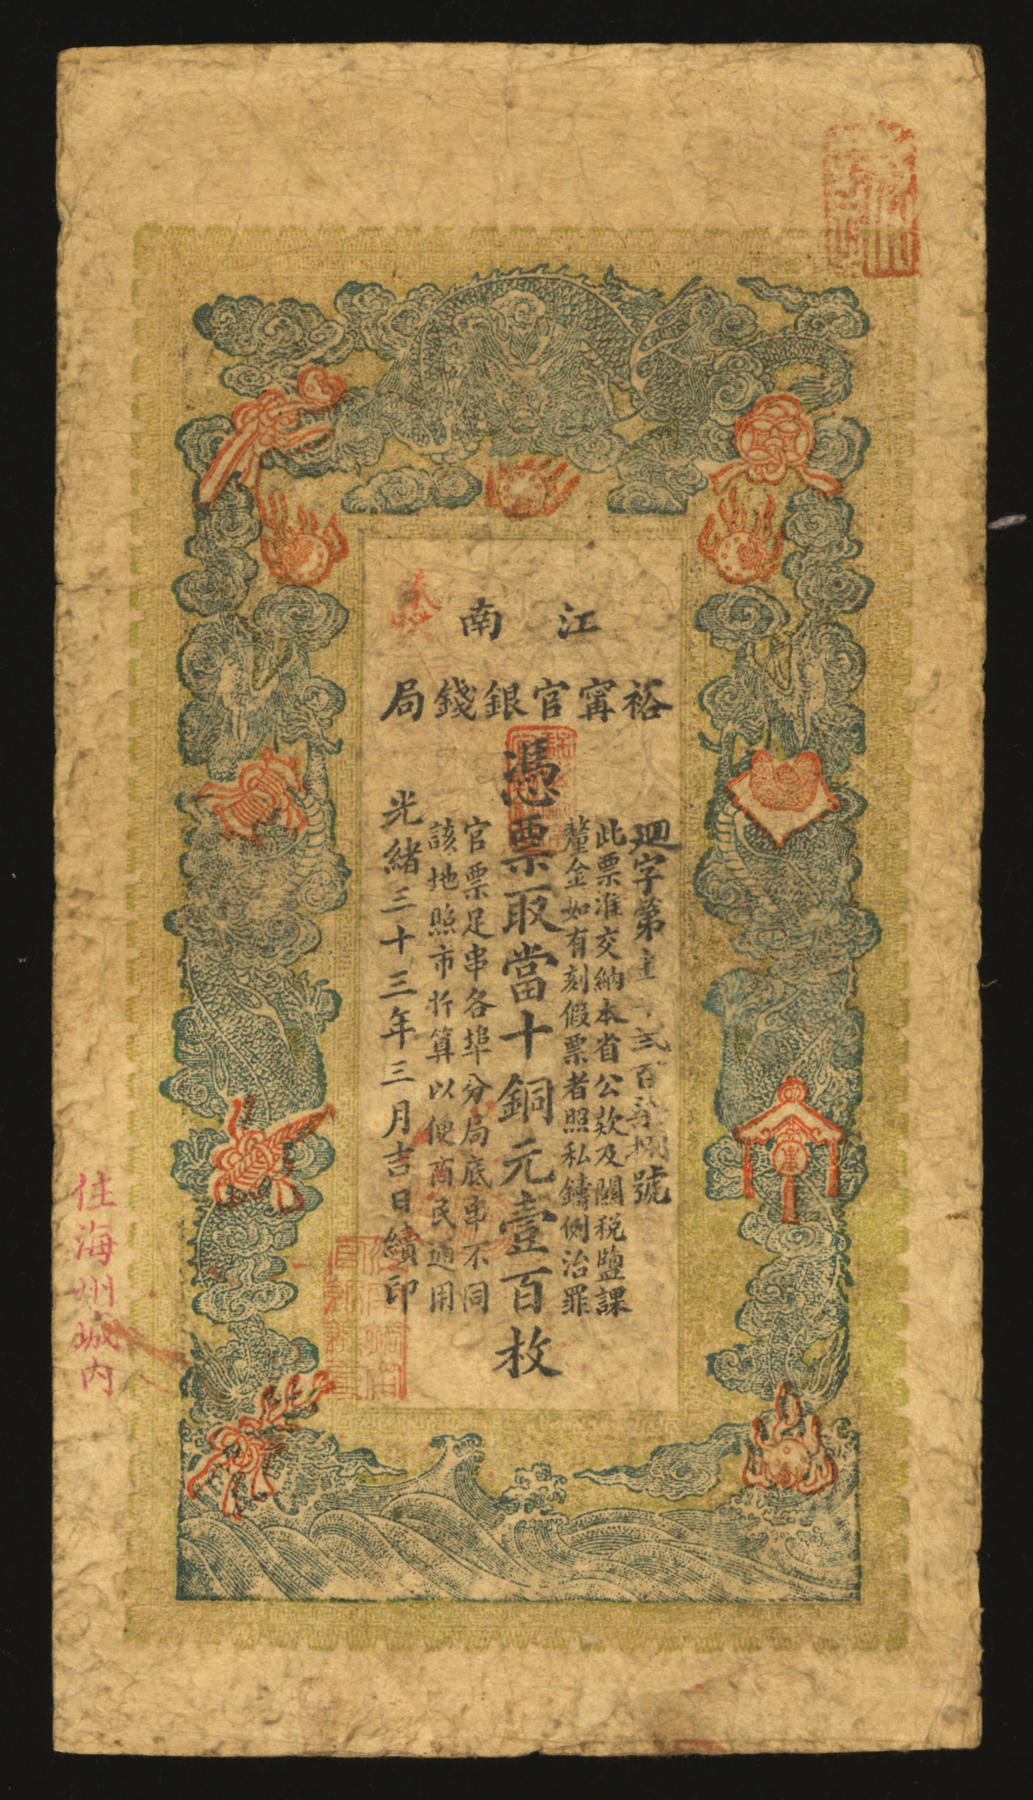 江南
裕寗官銀錢局
迴字第
百
號
此票准交納本省公欵及關稅鹽課
釐金如有刻假票者照私鑄例治罪
憑票取當十銅元壹百枚
官票足串各埠分局底串不同
該地照市折算以便商民通用
光緒三十三年三月吉日續印
住海州城内